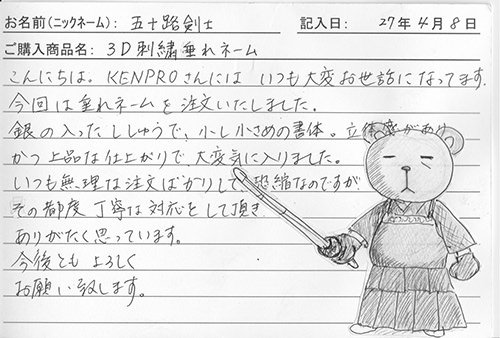 お名前(ニックネーム): 五十路剣士 記入日: 27年4月8日
ご購入商品名: 3D刺繍垂れネーム
こんにちは。KENPROさんには いつも大変お世話になってます。
今回は垂れネームを注文いたしました。
銀の入ったししゅうで、少し小さめの書体。立体感があり
かつ上品な仕上がりで大変気に入りました。
いつも無理な注文ばかりして恐縮なのですが
その都度 丁寧な対応をして頂き
ありがたく思っています。
今後とも よろしく
お願い致します。